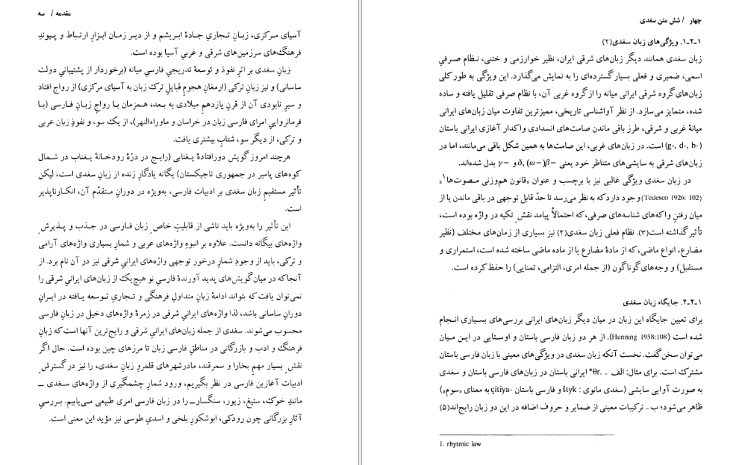 چهار / شش متن سغدی
۱-۲-۱. ویژگی‌های زبان سغدی(۲)
زبان سغدی همانند دیگر زبان‌های شرقی ایران، نظیر خوارزمی و ختنی، نظام صرفیِ
اسمی، ضمیری و فعلی بسیار گسترده‌ای را به نمایش می‌گذارد. این ویژگی به طور کلی
زبان‌های گروه شرقی ایرانی میانه را از گروه غربی آن، با نظام صرفی تقلیل یافته و ساده
شده، متمایز می‌سازد. از نظر آواشناسی تاریخی، ممیزترین تفاوت میان زبان‌های ایرانی
میانهٔ غربی و شرقی، طرز باقی ماندن صامت‌های انسدادی واکدار آغازی ایرانی باستان
(b-, d-, g-) است. در زبان‌های غربی، این صامت‌ها به همین شکل باقی می‌مانند، اما در
زبان‌های شرقی به سایشی‌های متناظر خود یعنی β- (w-)، δ- و γ- بدل شده‌اند.
در زبان سغدی ویژگی غالبی نیز با برچسب و عنوان «قانون هم‌وزنی مصوت‌ها۱»
(Tedesco 1926: 102) وجود دارد که به نظر می‌رسد تا حدّ قابل توجهی در باقی ماندن یا از
میان رفتنِ واکه‌های شناسه‌های صرفی، که احتمالاً پیامد نقشِ تکیه در واژه بوده است،
تأثیر گذاشته است(۳). نظام فعلی زبان سغدی(۴) نیز بسیاری از زمان‌های مختلف (نظیر
مضارع، انواع ماضی، که از مادهٔ مضارع یا از ماده ماضی ساخته شده است، استمراری و
مستقبل) و وجه‌های گوناگون (از جمله امری، التزامی، تمنایی) را حفظ کرده است.
۱-۲-۲. جایگاه زبان سغدی
برای تعیین جایگاه این زبان در میان دیگر زبان‌های ایرانی بررسی‌های بسیاری انجام
شده است (Henning 1958:108). از هر دو زبان فارسی باستان و اوستایی در این میان
می‌توان سخن گفت. نخست آنکه زبان سغدی در ویژگی‌های معینی با زبان فارسی باستان
مشترک است. برای مثال: الف - *θr ایرانی باستان در زبان‌های فارسی باستان و سغدی
به صورت آوایی سایشی (سغدی مانوی: štyk و فارسی باستان çitiya- به معنای «سوم»)
ظاهر می‌شود؛ ب - ترکیبات معینی از ضمایر و حروف اضافه در این دو زبان رایج‌اند(۵)
1. rhytmic law
مقدمه / سه
آسیای مرکزی، زبانِ تجاریِ جادهٔ ابریشم و از دیر زمان ابزار ارتباط و پیوندِ
فرهنگ‌های سرزمین‌های شرقی و غربیِ آسیا بوده است.
زبانِ سغدی بر اثر نفوذ و توسعهٔ تدریجی فارسی میانه (برخوردار از پشتیبانیِ دولت
ساسانی) و نیز زبانِ ترکی (ارمغانِ هجوم قبایلِ ترک زبان به آسیای مرکزی) از رواج افتاد
و سیرِ نابودی آن از قرنِ یازدهمِ میلادی به بعد، همزمان با رواجِ زبانِ فارسی (با
فرمانرواییِ امرای فارسی زبان در خراسان و ماوراءالنهر)، از یک سو، و نفوذِ زبان عربی
و ترکی، از دیگر سو، شتابِ بیشتری یافت.
هرچند امروز گویشِ دورافتادهٔ یـغنابی (رایج در درّهٔ رودخـانهٔ یـغناب در شـمال
کوه‌های پامیر در جمهوری تاجیکستان) یگانه یادگارِ زنده از زبانِ سغدی است، لیکن
تأثیر مستقیمِ سغدی بر ادبیات فارسی، به‌ویژه در دورانِ متقدّمِ آن، انکارناپذیر
است.
این تأثیر را به‌ویژه باید ناشی از قابلیتِ خاصِ زبان فارسی در جـذب و پـذیرشِ
واژه‌های بیگانه دانست. علاوه بر انبوهِ واژه‌های عربی و شمارِ بسیاری واژه‌های آرامی
و ترکی، باید از وجودِ شمارِ درخورِ توجهی واژه‌های ایرانیِ شرقی نیز در آن نام برد. از
آنجا که در میان گویش‌های پدید آورندهٔ فارسیِ نو هیچ‌یک از زبان‌های ایرانیِ شرقی را
نمی‌توان یافت که بتواند ادامهٔ زبانِ متداولِ فرهنگی و تجاریِ توسعه یافته در ایرانِ
دورانِ ساسانی باشد، لذا واژه‌های ایرانیِ شرقی در زمرهٔ واژه‌های دخیل در زبانِ فارسی
محسوب می‌شوند. سغدی از جمله زبان‌های ایرانیِ شرقی و رایج‌ترینِ آنها است که زبان
فرهنگ و ادب و بازرگانی در مناطقِ فارسی زبان تا مرزهای چین بوده است. حال اگر
نقشِ بسیار مهم بخارا و سمرقند، مادرشهرهای قلمرو زبانِ سغدی، را نیز در گسترشِ
ادبیات آغازینِ فارسی در نظر بگیریم، ورود شمارِ چشمگیری از واژه‌های سغدی —
مانندِ خوک، ستیغ، زیور، سنگسار — را در زبان فارسی امری طبیعی می‌یابیم. بررسیِ
آثارِ بزرگانی چون رودکی، ابوشکورِ بلخی و اسدی طوسی نیز مؤید این معنی است.